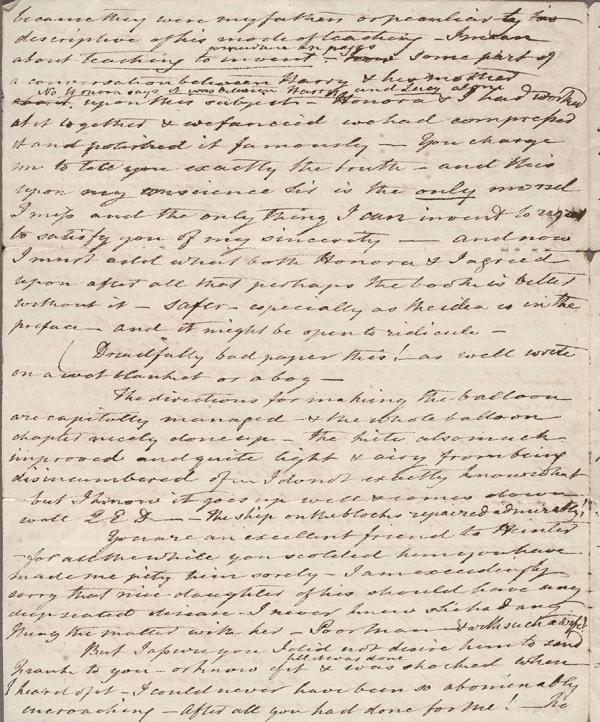 because they were my father's or peculiarly his
descriptive of his mode of teaching - I mean
somewhere in pages
about teaching to invent - how some part of
a conversation between Harry & his mother
No Honora says it was between Harry and Lucy alone
upon this subject - Honora & I had worked
at it together & we fancied we had compressed
it and polished it famously - You charge
me to tell you exactly the truth - and this
upon my conscience Sir is the only morsel
I miss and the only thing I can invent to regret
to satisfy you of my sincerity - and now
I must add what both Honora & I agreed
upon after all that perhaps the book is better
without it - safer - especially as the idea is in the
preface - and it might be open to ridicule -
(Dreadfully bad paper this! as well write
on a wet blanket or a bog -
The directions for making the balloon
are capitally managed - & the whole balloon
chapter nicely done up - the kite also much
improved and quite light & airy from being
disincumbered of - I do not exactly know what
- but I know it goes up well & comes down
well Q E D - the ship on the blocks repaired admirably!
You are an excellent friend to Hunter
- for all the while you scolded him you have
made me pity him sorely - I am exceedingly
sorry that daughter of his should have any
disease - I never knew she had any
thing the matter with her - Poor man & with such a wife!
But I assure you I did not desire him to send
till it was done
to you - or know of it & was shocked when
I heard of it - I could never have been so abominably
encroaching - after all you had done for me! -